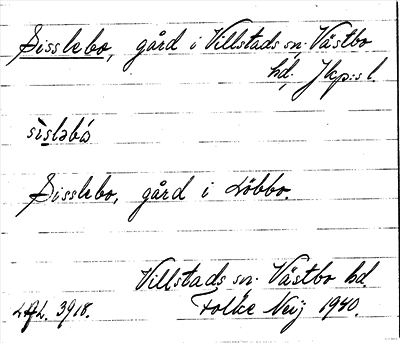 Sisslebo, gård i Villstads sn. Västbo
hd. Jkp:s l.
sìsləbó
Sisslebo, gård i Löbbo.
Villstads sn. Västbo hd.
LAL. 3918. Folke Neij 1940.